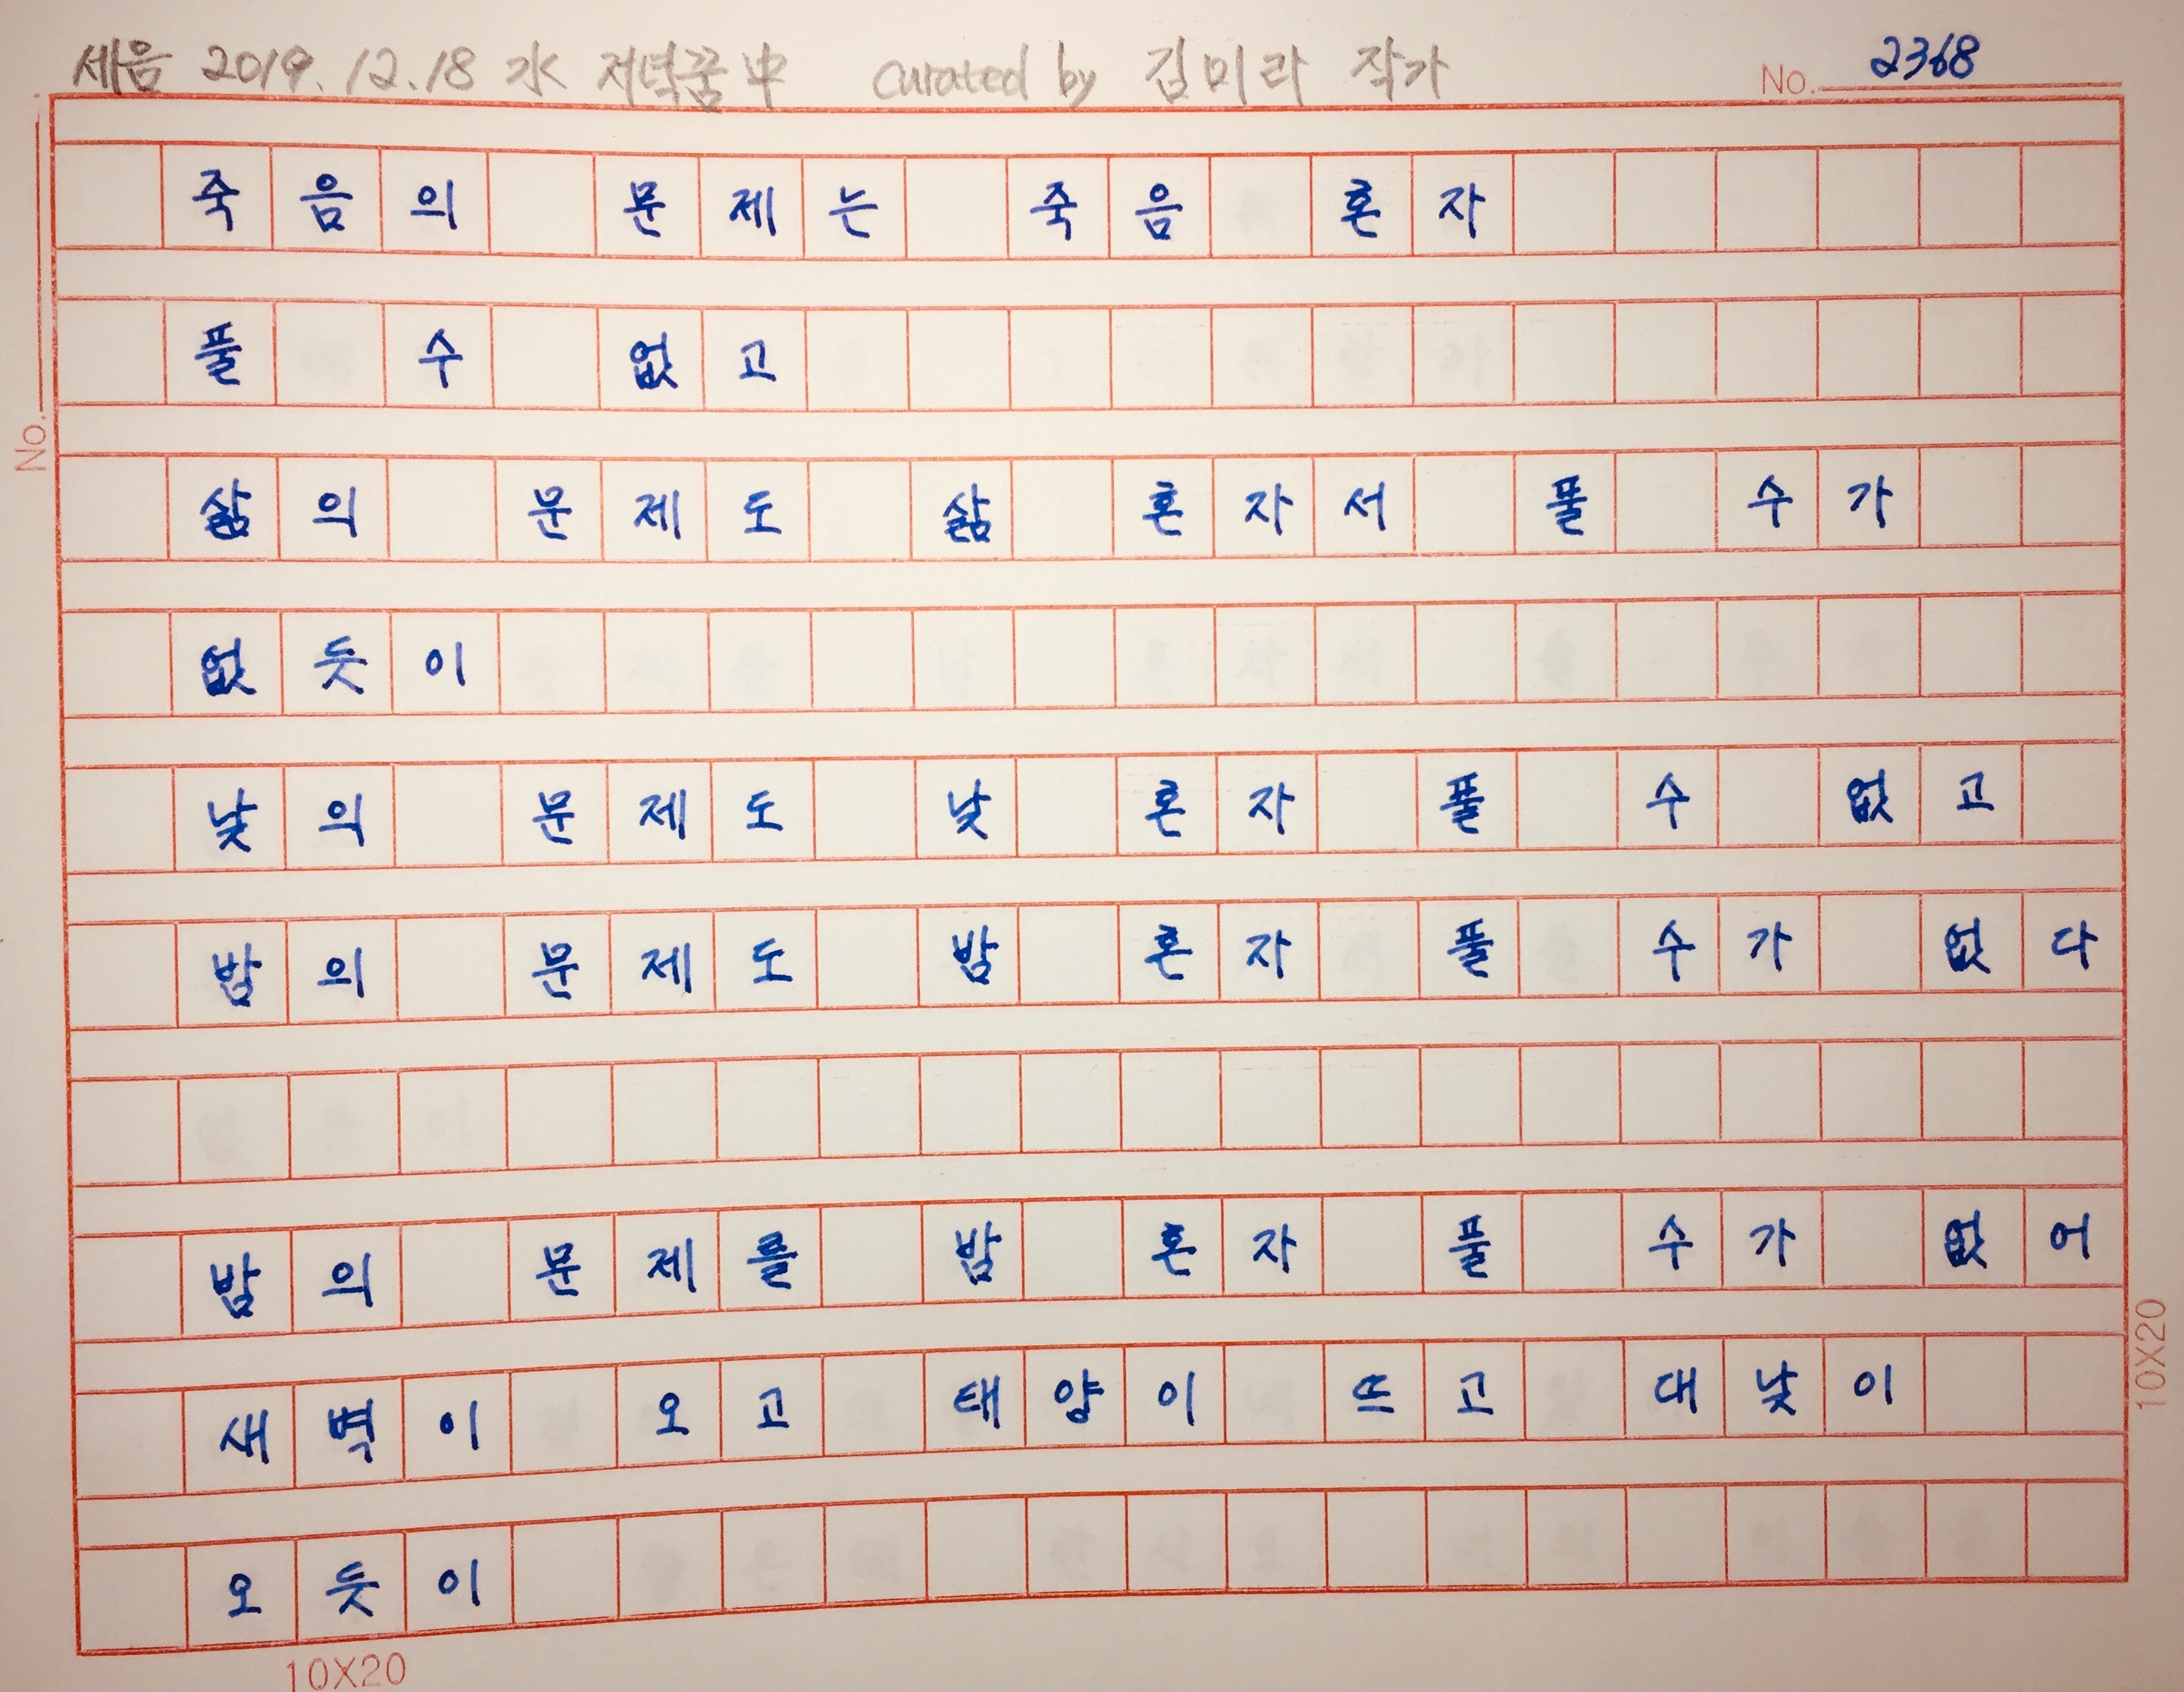 세음 2019. 12. 18 水 저녁꿈 中 curated by 김미라 작가
No. 2368
죽음의 문제는 죽음 혼자
풀 수 없고
삶의 문제도 삶 혼자서 풀 수가
없듯이
낮의 문제도 낮 혼자 풀 수 없고
밤의 문제도 밤 혼자 풀 수가 없다
밤의 문제를 밤 혼자 풀 수가 없어
새벽이 오고 태양이 뜨고 대낮이
오듯이
No.
10X20
10X20